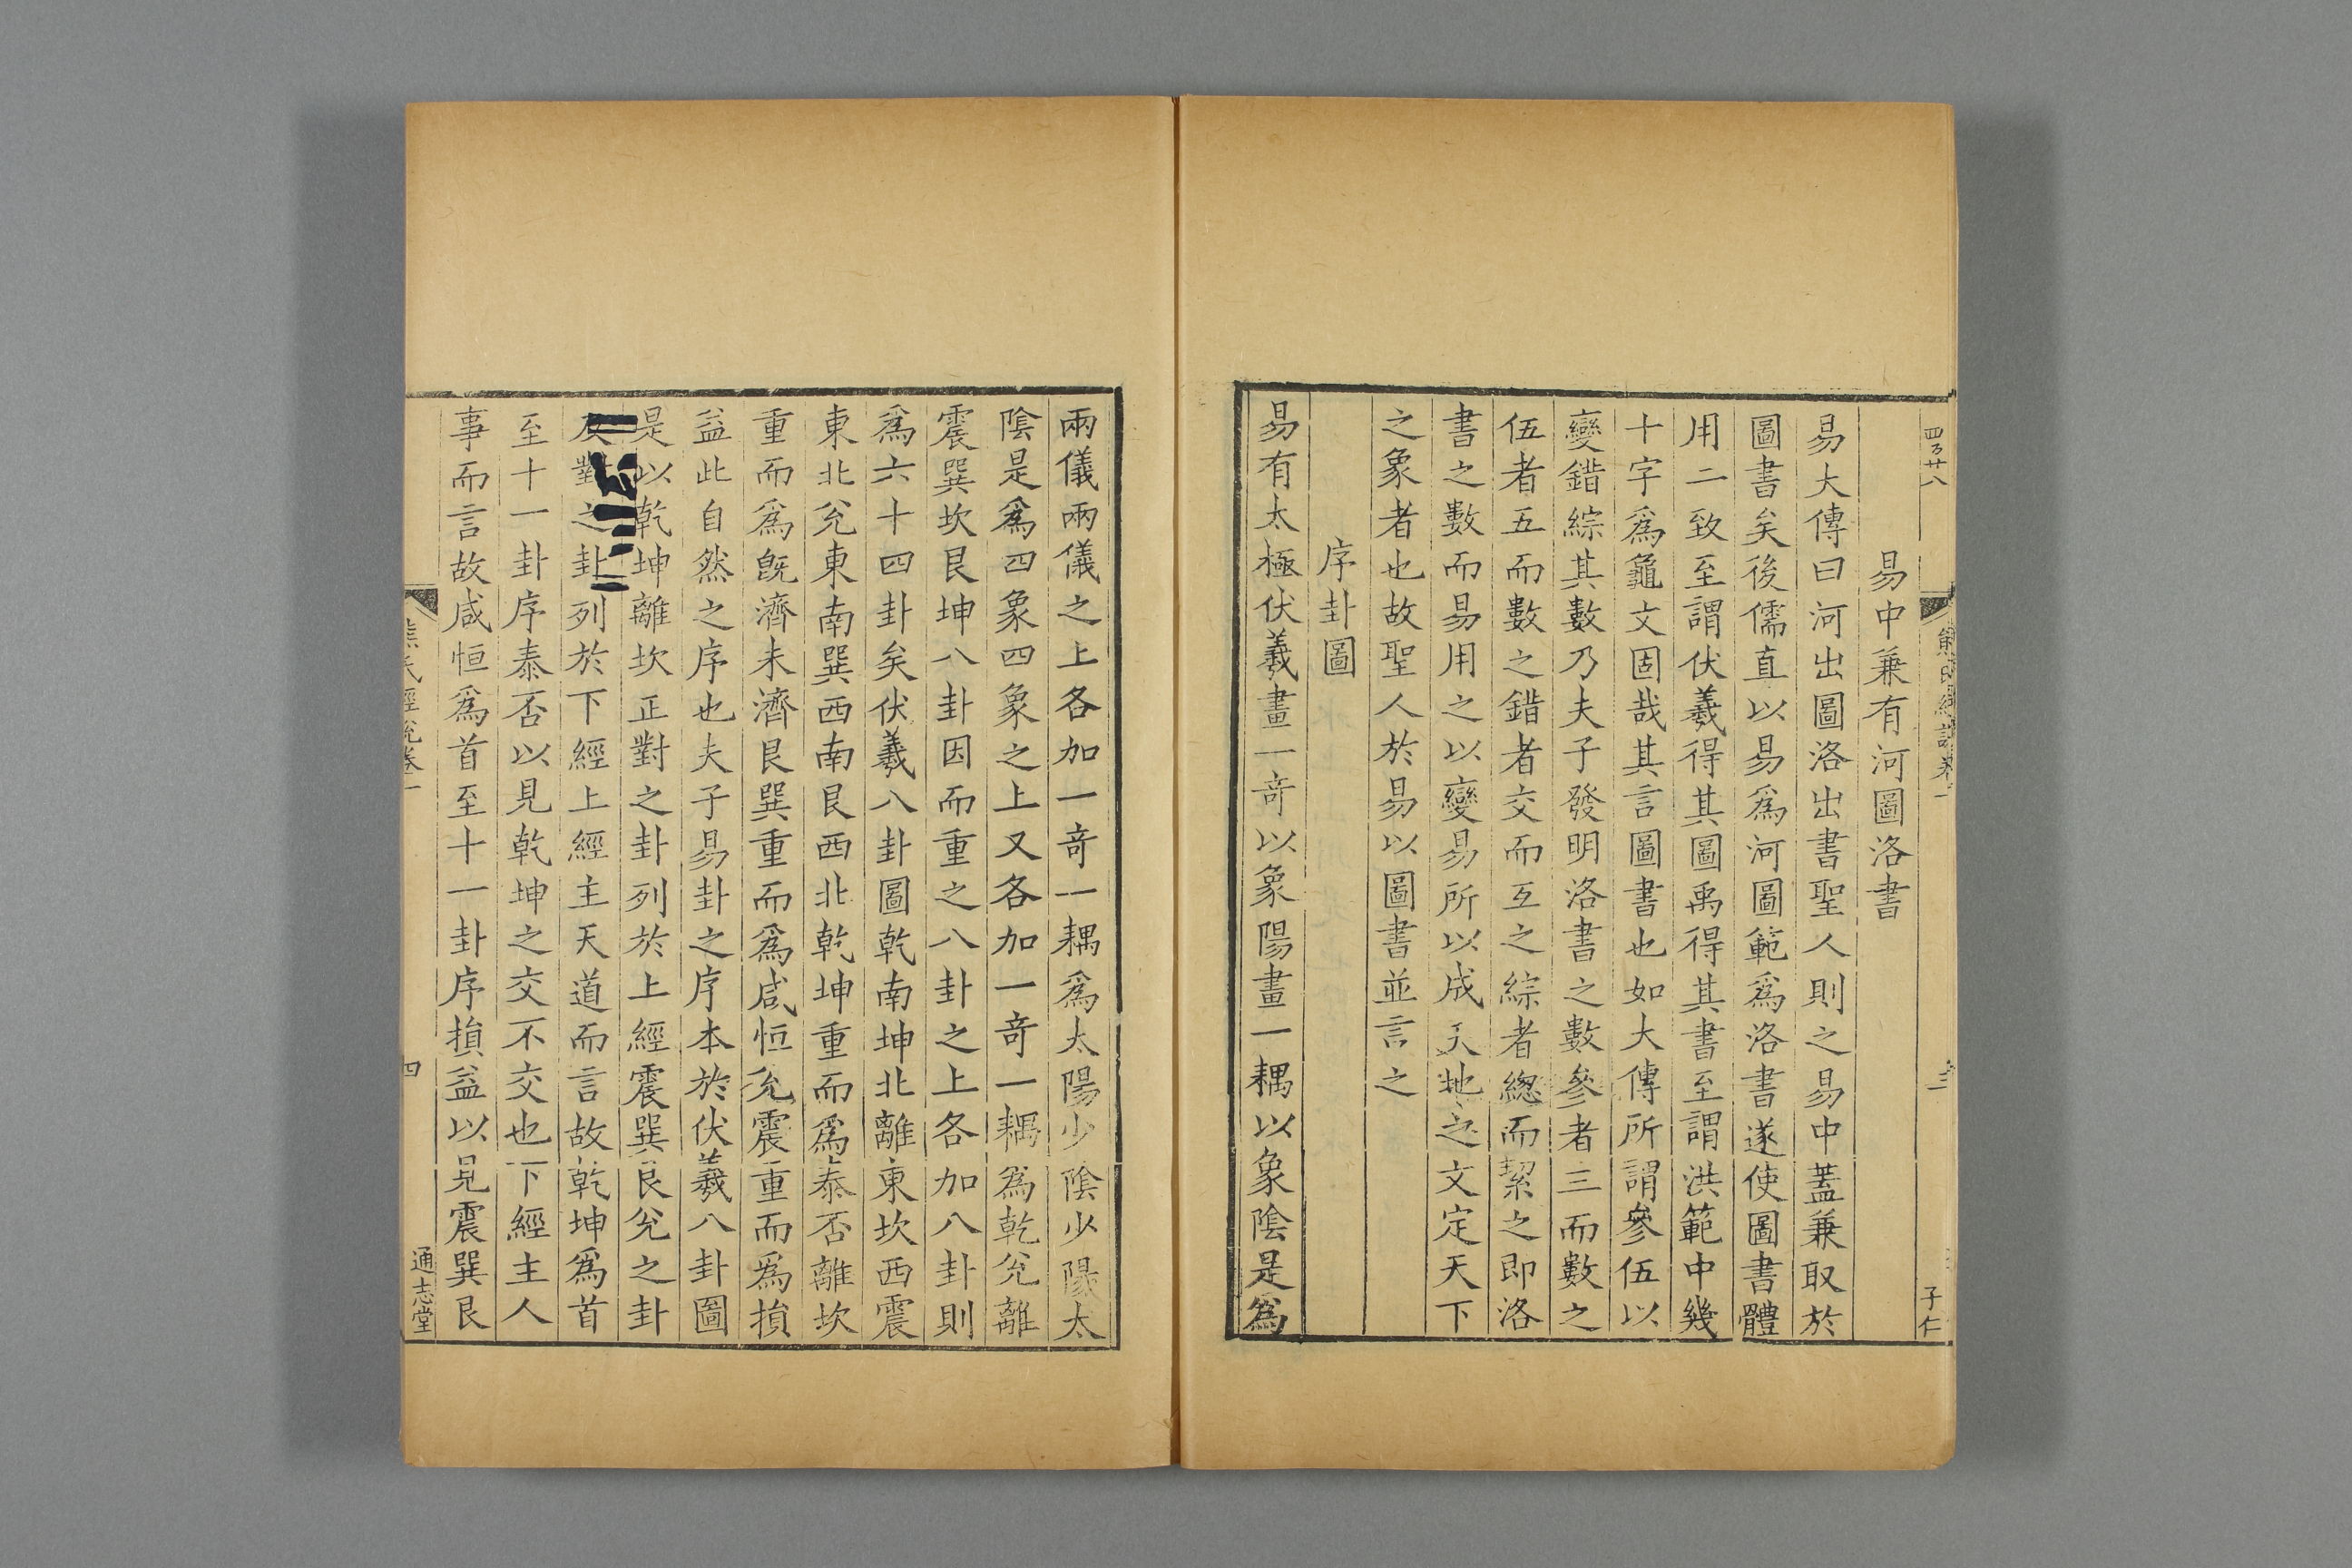 四百廿八
熊氏經說卷一
三
子仁
易中兼有河圖洛書
易大傳曰河出圖洛出書聖人則之易中蓋兼取於
圖書矣後儒直以易爲河圖範爲洛書遂使圖書體
用二致至謂伏羲得其圖禹得其書至謂洪範中幾
十字爲龜文固哉其言圖書也如大傳所謂參伍以
變錯綜其數乃夫子發明洛書之數參者三而數之
伍者五而數之錯者交而互之綜者總而絜之即洛
書之數而易用之以變易所以成天地之文定天下
之象者也故聖人於易以圖書並言之
序卦圖
易有太極伏羲畫一奇以象陽畫一耦以象陰是爲
兩儀兩儀之上各加一奇一耦爲太陽少陰少陽太
陰是爲四象四象之上又各加一奇一耦爲乾兊離
震巽坎艮坤八卦因而重之八卦之上各加八卦則
爲六十四卦矣伏羲八卦圖乾南坤北離東坎西震
東北兊東南巽西南艮西北乾坤重而爲泰否離坎
重而爲旣濟未濟艮巽重而爲咸恒兊震重而爲損
益此自然之序也夫子易卦之序本於伏羲八卦圖
是以乾坤離坎正對之卦列於上經震巽艮兊之卦
反對之卦列於下經上經主天道而言故乾坤爲首
至十一卦序泰否以見乾坤之交不交也下經主人
事而言故咸恒爲首至十一卦序損益以見震巽艮
熊氏經說卷一
四
通志堂